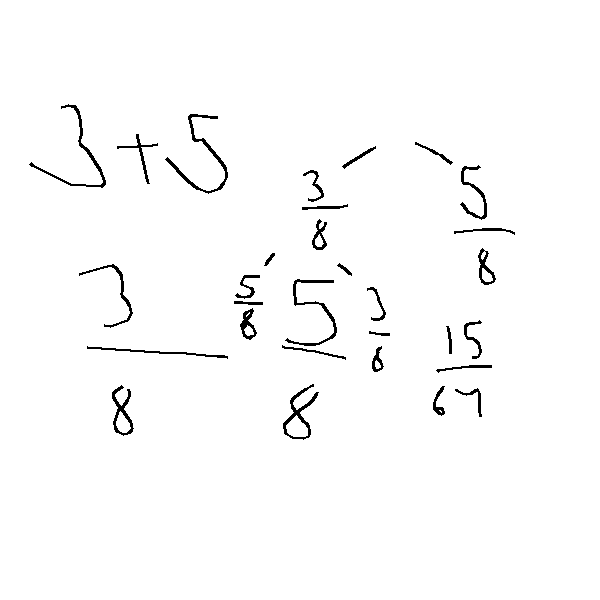 3+5
3/8 5/8
3/8 5/8 5/8 3/8
15/64